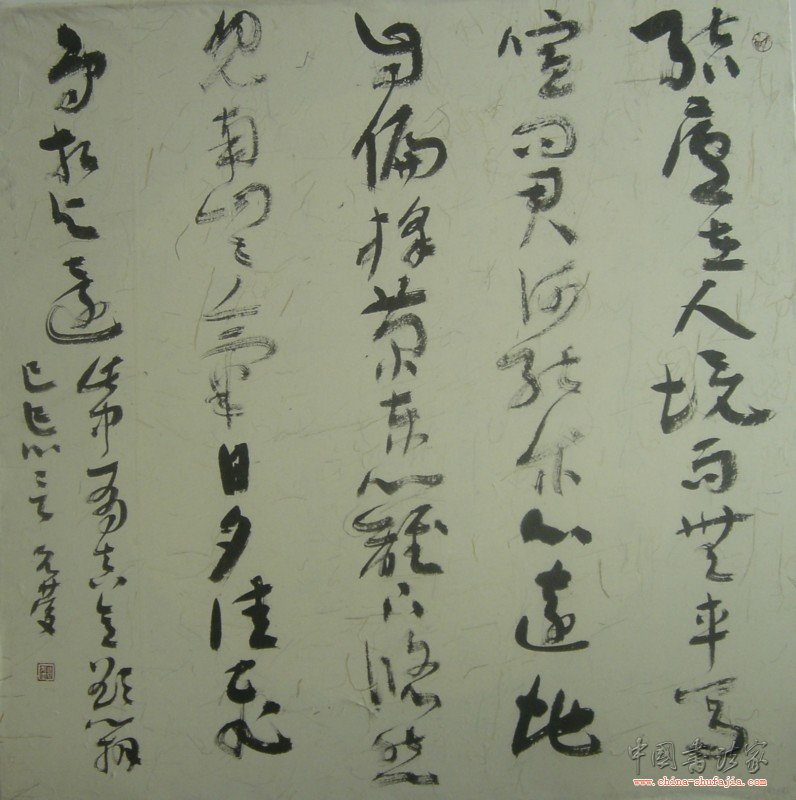 結廬在人境而無車馬
喧問君何能尔心遠地
自偏採菊東籬下悠然
見南山々氣日夕佳飛
鳥相与還此中有真意欲辨
已忘言
中国书法家
www.china-shufajia.com